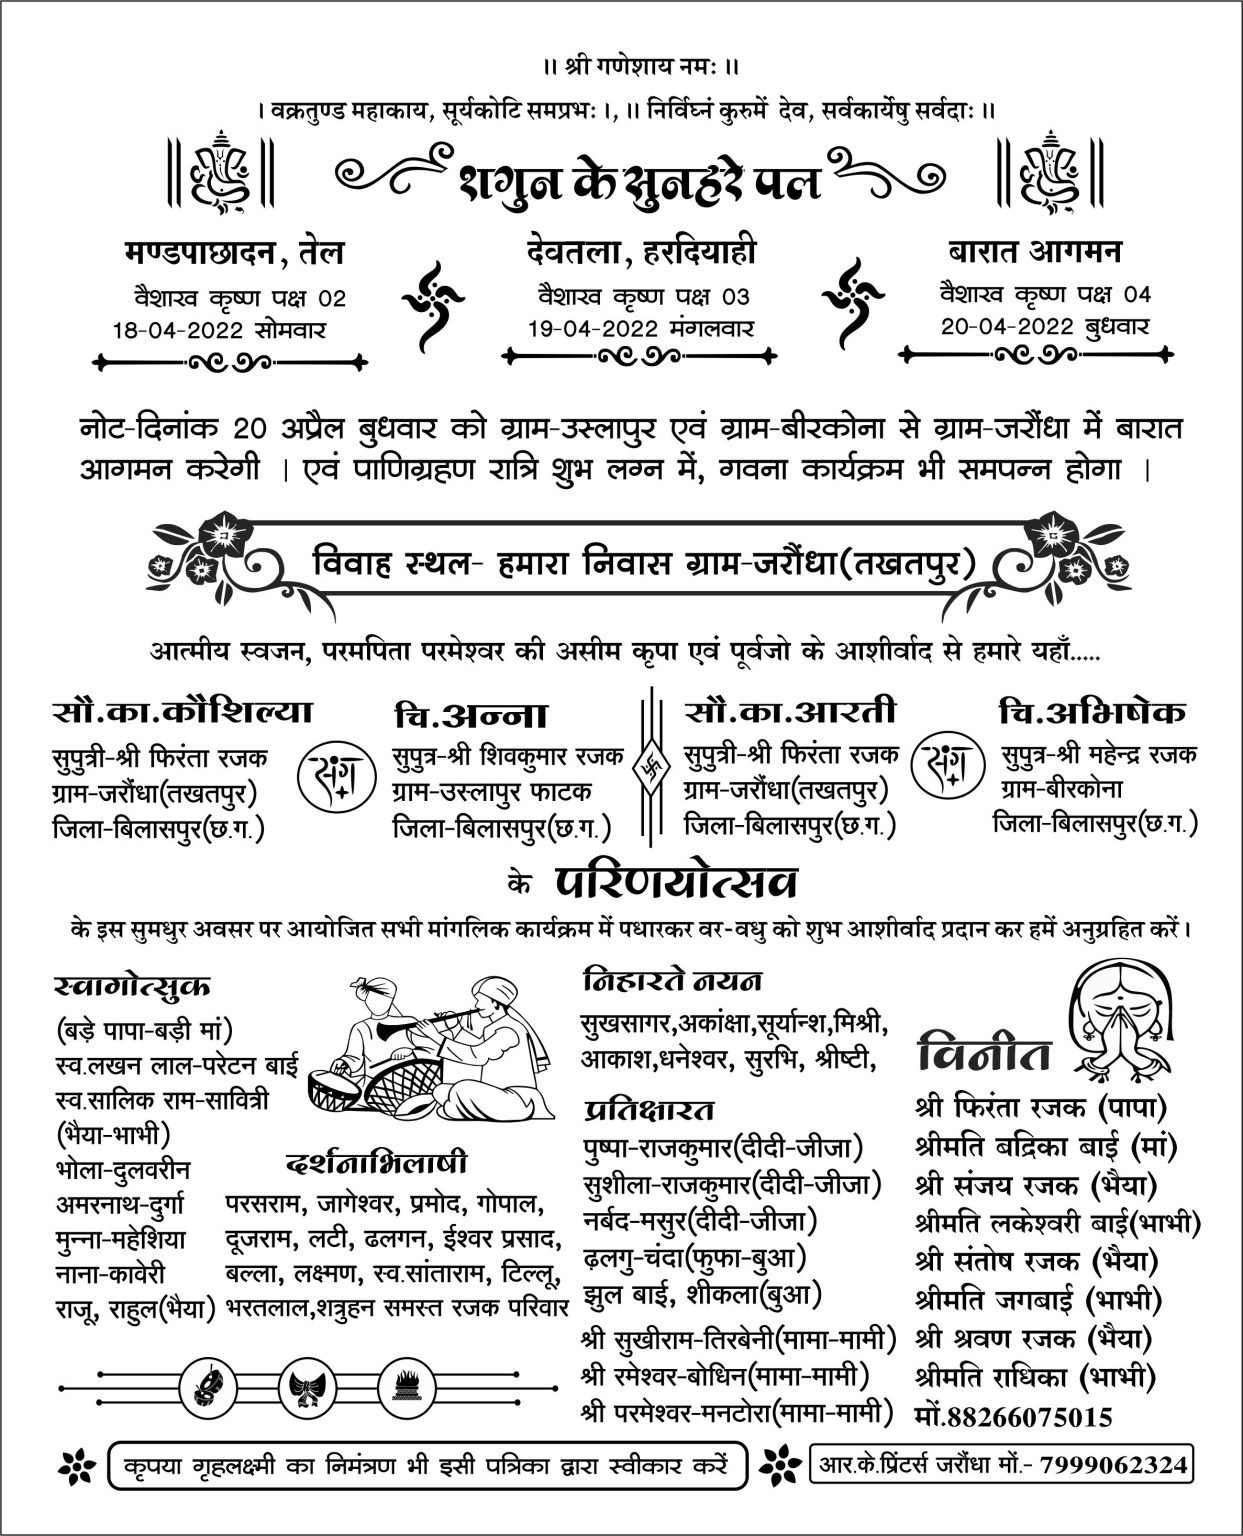 ॥ श्री गणेशाय नमः ॥
। वक्रतुण्ड महाकाय, सूर्यकोटि समप्रभः।, ॥ निर्विघ्नं कुरुमें देव, सर्वकार्येषु सर्वदाः॥
शगुन के सुनहरे पल
मण्डपाछादन, तेल
वैशाख कृष्ण पक्ष 02
18-04-2022 सोमवार
देवतला, हरदियाही
वैशाख कृष्ण पक्ष 03
19-04-2022 मंगलवार
बारात आगमन
वैशाख कृष्ण पक्ष 04
20-04-2022 बुधवार
नोट-दिनांक 20 अप्रैल बुधवार को ग्राम-उस्लापुर एवं ग्राम-बीरकोना से ग्राम-जरौंधा में बारात
आगमन करेगी । एवं पाणिग्रहण रात्रि शुभ लग्न में, गवना कार्यक्रम भी समपन्न होगा ।
विवाह स्थल- हमारा निवास ग्राम-जरौंधा(तखतपुर)
आत्मीय स्वजन, परमपिता परमेश्वर की असीम कृपा एवं पूर्वजो के आशीर्वाद से हमारे यहाँ.....
सौ.का.कौशिल्या
सुपुत्री-श्री फिरंता रजक
ग्राम-जरौंधा(तखतपुर)
जिला-बिलासपुर(छ.ग.)
संग
चि.अन्ना
सुपुत्र-श्री शिवकुमार रजक
ग्राम-उस्लापुर फाटक
जिला-बिलासपुर(छ.ग.)
सौ.का.आरती
सुपुत्री-श्री फिरंता रजक
ग्राम-जरौंधा(तखतपुर)
जिला-बिलासपुर(छ.ग.)
संग
चि.अभिषेक
सुपुत्र-श्री महेन्द्र रजक
ग्राम-बीरकोना
जिला-बिलासपुर(छ.ग.)
के परिणयोत्सव
के इस सुमधुर अवसर पर आयोजित सभी मांगलिक कार्यक्रम में पधारकर वर-वधु को शुभ आशीर्वाद प्रदान कर हमें अनुग्रहित करें।
स्वागोत्सुक
(बड़े पापा-बड़ी मां)
स्व.लखन लाल-परेटन बाई
स्व.सालिक राम-सावित्री
(भैया-भाभी)
भोला-दुलवरीन
अमरनाथ-दुर्गा
मुन्ना-महेशिया
नाना-कावेरी
राजू, राहुल(भैया)
दर्शनाभिलाषी
परसराम, जागेश्वर, प्रमोद, गोपाल,
दूजराम, लटी, ढलगन, ईश्वर प्रसाद,
बल्ला, लक्ष्मण, स्व.सांताराम, टिल्लू,
भरतलाल,शत्रुहन समस्त रजक परिवार
निहारते नयन
सुखसागर,अकांक्षा,सूर्यान्श,मिश्री,
आकाश,धनेश्वर, सुरभि, श्रीष्टी,
प्रतिक्षारत
पुष्पा-राजकुमार(दीदी-जीजा)
सुशीला-राजकुमार(दीदी-जीजा)
नर्बद-मसुर(दीदी-जीजा)
ढ़लगु-चंदा(फुफा-बुआ)
झुल बाई, शीकला(बुआ)
श्री सुखीराम-तिरबेनी(मामा-मामी)
श्री रमेश्वर-बोधिन(मामा-मामी)
श्री परमेश्वर-मनटोरा(मामा-मामी)
विनीत
श्री फिरंता रजक (पापा)
श्रीमति बद्रिका बाई (मां)
श्री संजय रजक (भैया)
श्रीमति लकेश्वरी बाई(भाभी)
श्री संतोष रजक (भैया)
श्रीमति जगबाई (भाभी)
श्री श्रवण रजक (भैया)
श्रीमति राधिका (भाभी)
मों.88266075015
कृपया गृहलक्ष्मी का निमंत्रण भी इसी पत्रिका द्वारा स्वीकार करें
आर.के.प्रिंटर्स जरौंधा मों.- 7999062324